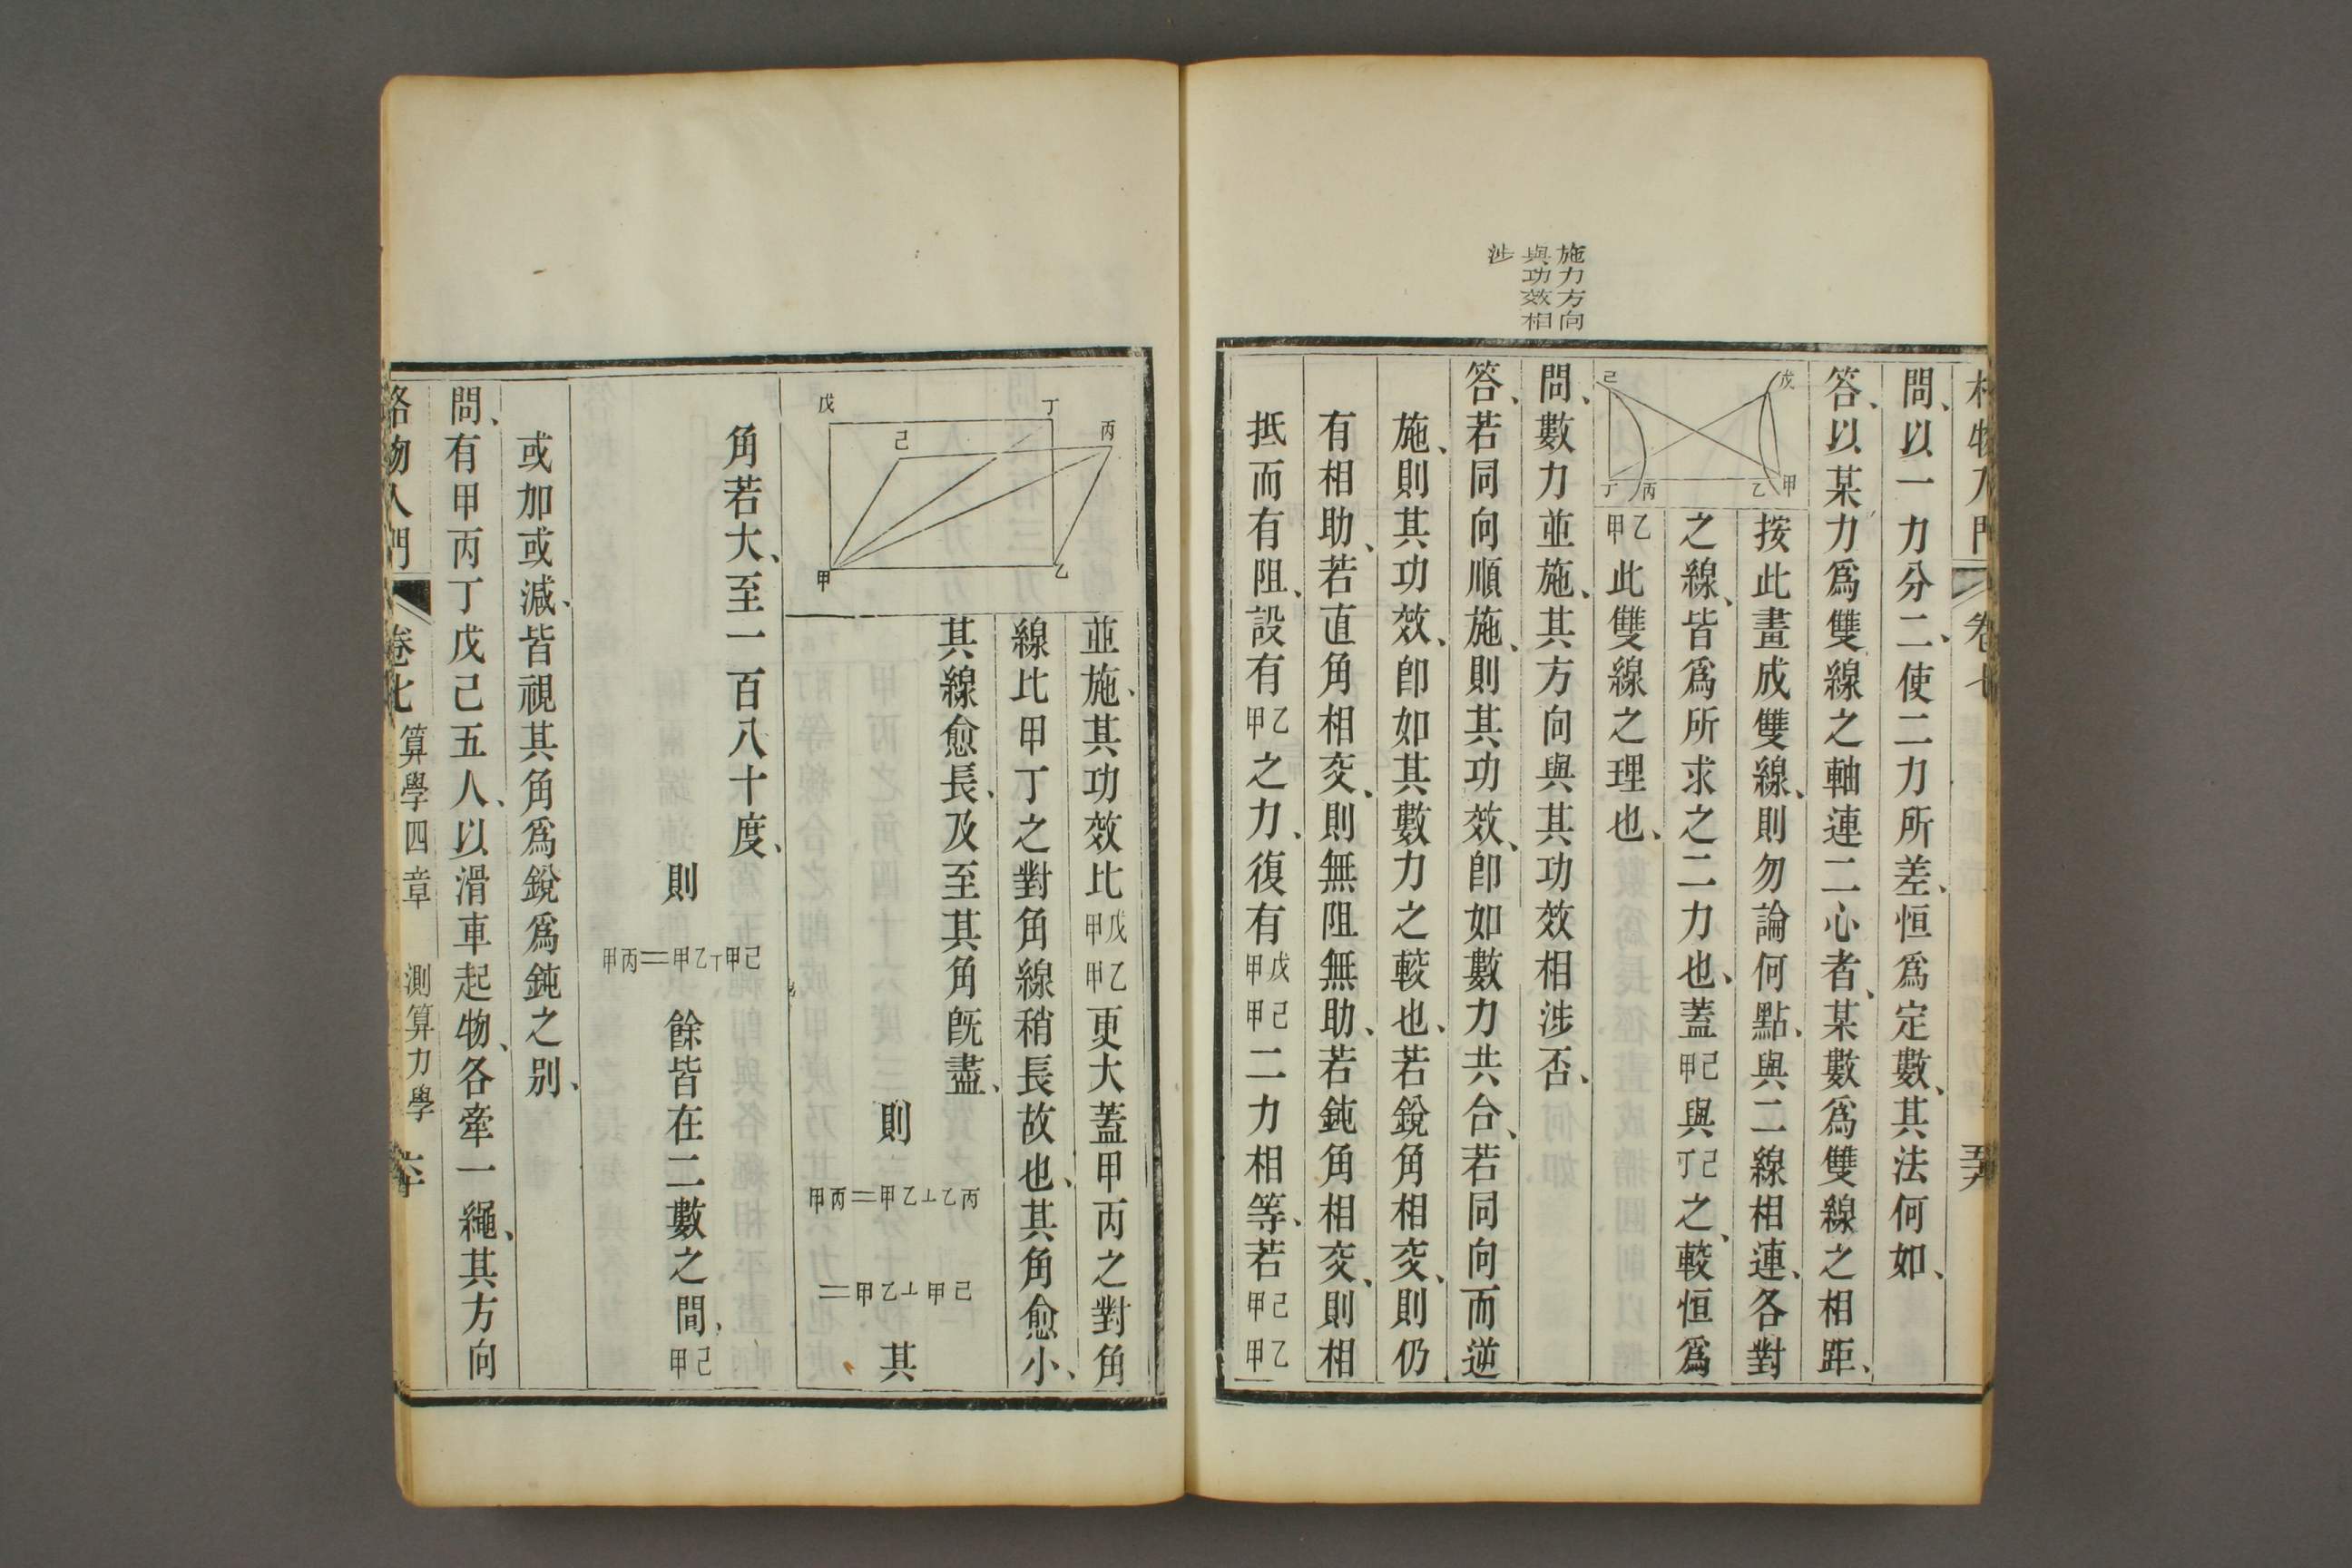 格物入門 卷七
五十九
問、以一力分二、使二力所差、恒爲定數、其法何如、
答、以某力爲雙線之軸連二心者、某數爲雙線之相距、
戊
己
甲
乙
丙
丁
按此畫成雙線、則勿論何點、與二線相連、各對
之線、皆爲所求之二力也、蓋甲己與丁己之、較恒爲
甲乙此雙線之理也、
施力方向
與功效相
涉
問、數力並施、其方向與其功效相涉否、
答、若同向順施、則其功效、卽如數力共合、若同向而逆
施、則其功效、卽如其數力之較也、若銳角相交、則仍
有相助、若直角相交、則無阻無助、若鈍角相交、則相
抵而有阻、設有甲乙之力、復有甲戊甲己二力相等、若甲己甲乙
戊
丁
己
丙
甲
乙
並施、其功效比甲戊甲乙更大蓋甲丙之對角
線比甲丁之對角線稍長故也、其角愈小、
其線愈長、及至其角旣盡、
則甲丙=甲乙⊥乙丙=甲乙⊥甲己其
角若大、至一百八十度、
則甲丙=甲乙丅甲己餘皆在二數之間、甲己
或加或減、皆視其角爲銳爲鈍之别、
問、有甲丙丁戊己五人、以滑車起物、各牽一繩、其方向
格物入門 卷七 算學四章 測算力學 六十